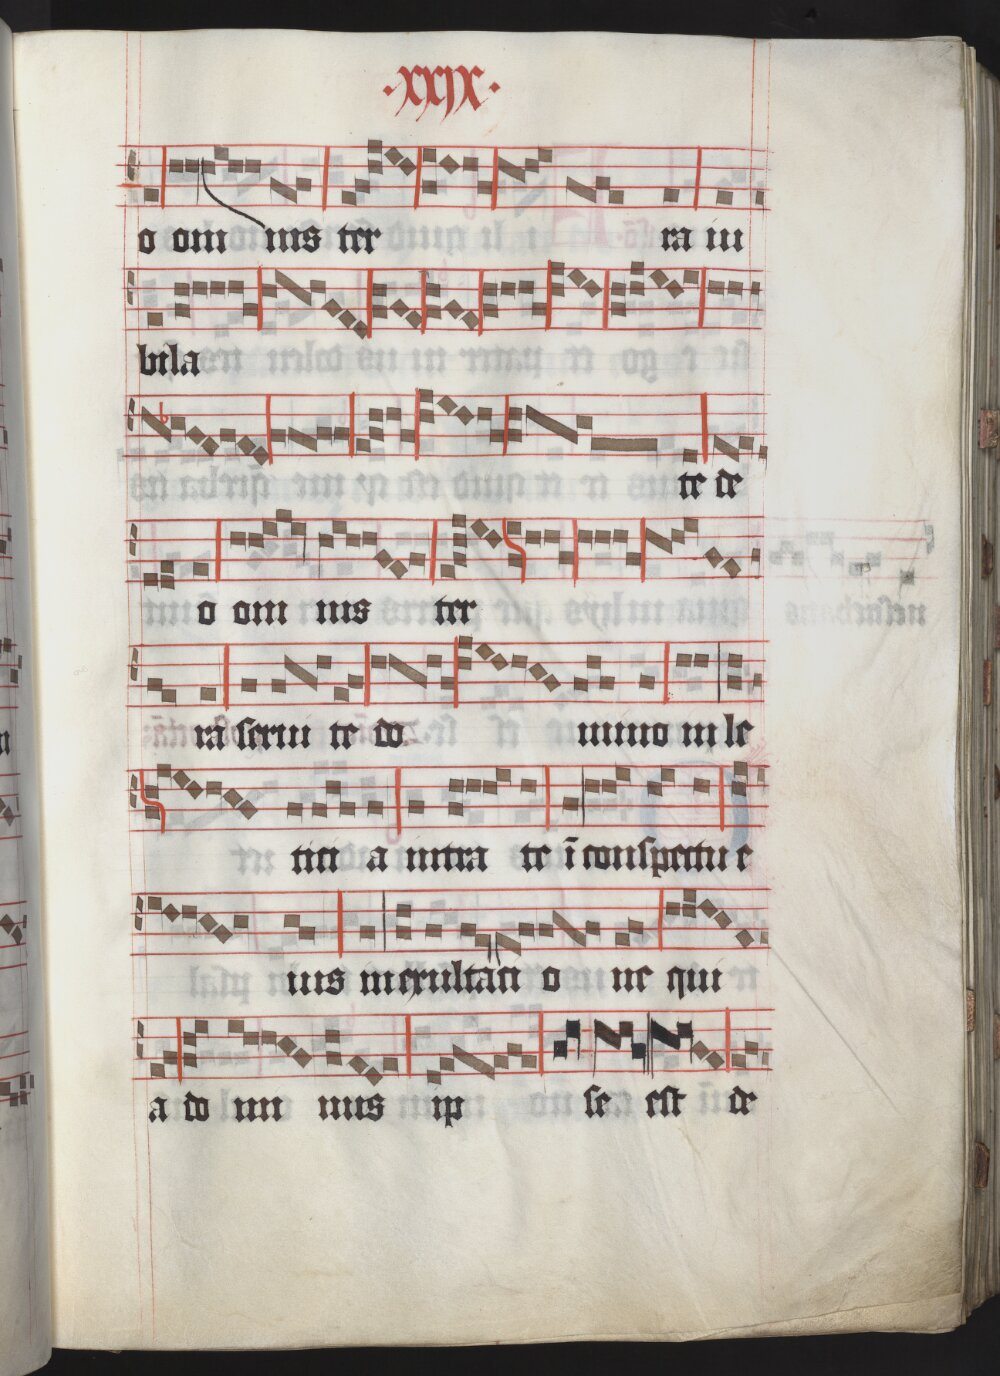 ·xxix·
o om nis ter ra iu
bila
te de
o om nis ter
rā serui te do mino in le
titi a intra te ī conspectu e
ius inexultati o ne qui
a do mi nus ip se est de